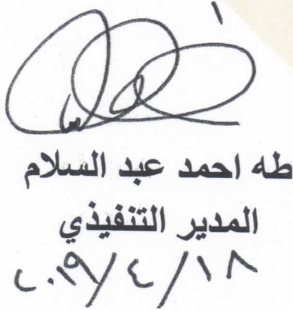 طه احمد عبد السلام
المدير التنفيذي
٢٠١٩/٤/١٨